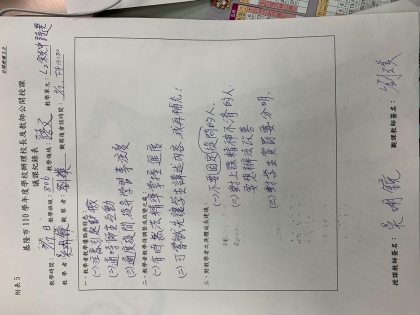 附表 5
基隆市 110 學年度學校辦理校長及教師公開授課
議課紀錄表
教學時間： 教學班級：806 教學領域：語文 教學單元：
教學者：吳明鏡 觀察者：劉 觀察後會談時間：
一、教學者教學優點與特色：
(二)適時師生互動
(三)適度提問，提升學習專注度
二、教學者教學待調整或改變之處：
(一)有時無法精準掌握進度
(二)可嘗試先讓學生講述內容，我再補充！
三、對教學者之具體成長建議：
(一)不要固定提問的人.
(二)對上課精神不濟的人
要想辦法改善
(三)對學生賞罰要分明.
授課教師簽名：吳明鏡 觀課教師簽名：劉